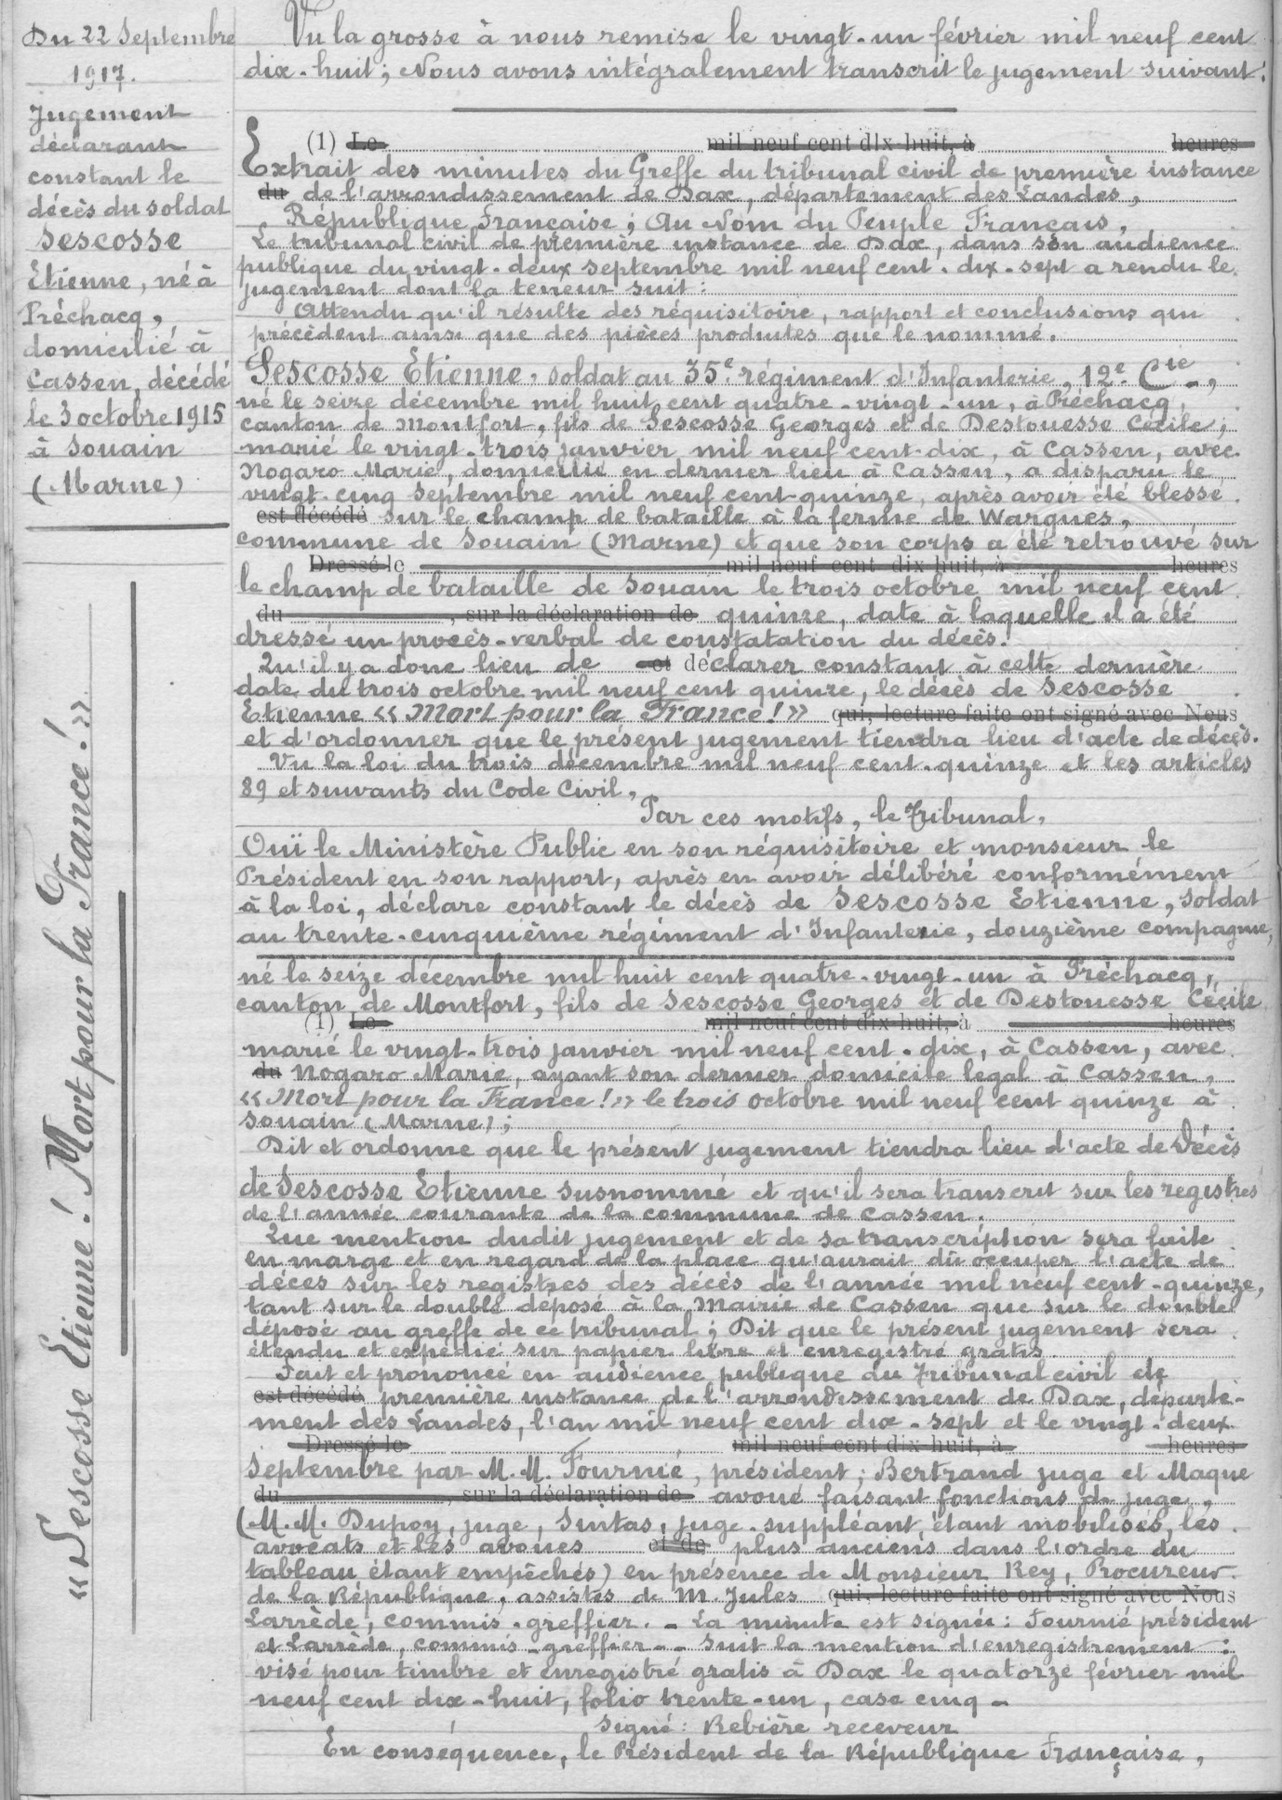 Du 22 Septembre
1917.
Jugement
déclarant
constant le
décès du soldat
Sescosse
Etienne, né à
Préchacq,
domicilié à
Cassen, décédé
le 3 octobre 1915
à Souain
(Marne)
« Sescosse Etienne ! Mort pour la France ! »
Vu la grosse à nous remise le vingt-un février mil neuf cent
dix-huit ; Nous avons intégralement transcrit le jugement suivant :
(1) Le mil neuf cent dix-huit, à heures
Extrait des minutes du Greffe du tribunal civil de première instance
du de l'arrondissement de Dax, département des Landes,
République Française ; Au Nom du Peuple Français,
Le tribunal civil de première instance de Dax, dans son audience
publique du vingt-deux septembre mil neuf cent-dix-sept a rendu le
jugement dont la teneur suit :
Attendu qu'il résulte des réquisitoire, rapport et conclusions qui
précèdent ainsi que des pièces produites que le nommé.
Sescosse Etienne, soldat au 35e régiment d'Infanterie, 12e Cie,
né le seize décembre mil huit cent quatre-vingt-un, à Préchacq,
canton de Montfort, fils de Sescosse Georges et de Destouesse Cécile ;
marié le vingt-trois janvier mil neuf cent-dix, à Cassen, avec
Nogaro Marie, domicilié en dernier lieu à Cassen, a disparu le
vingt-cinq septembre mil neuf cent-quinze, après avoir été blessé
est décédé sur le champ de bataille à la ferme de Wargues,
commune de Souain (Marne) et que son corps a été retrouvé sur
Dressé le mil neuf cent dix-huit, à heures
le champ de bataille de Souain le trois octobre mil neuf cent
du , sur la déclaration de quinze, date à laquelle il a été
dressé un procès-verbal de constatation du décès.
Qu'il y a donc lieu de et déclarer constant à cette dernière
date du trois octobre mil neuf cent quinze, le décès de Sescosse
Etienne « Mort pour la France ! » qui, lecture faite ont signé avec Nous
et d'ordonner que le présent jugement tiendra lieu d'acte de décès.
Vu la loi du trois décembre mil neuf cent-quinze et les articles
89 et suivants du Code Civil,
Par ces motifs, le Tribunal,
Ouï le Ministère Public en son réquisitoire et monsieur le
Président en son rapport, après en avoir délibéré conformément
à la loi, déclare constant le décès de Sescosse Etienne, soldat
au trente-cinquième régiment d'Infanterie, douzième compagnie,
né le seize décembre mil huit cent quatre-vingt-un à Préchacq,
canton de Montfort, fils de Sescosse Georges et de Destouesse Cécile
(1) Le mil neuf cent dix-huit, à heures
marié le vingt-trois janvier mil neuf cent-dix, à Cassen, avec
du Nogaro Marie, ayant son dernier domicile légal à Cassen,
« Mort pour la France ! » le trois octobre mil neuf cent quinze à
Souain (Marne) ;
Dit et ordonne que le présent jugement tiendra lieu d'acte de Décès
de Sescosse Etienne susnommé et qu'il sera transcrit sur les registres
de l'année courante de la commune de Cassen.
Que mention dudit jugement et de sa transcription sera faite
en marge et en regard de la place qu'aurait dû occuper l'acte de
décès sur les registres des décès de l'année mil neuf cent-quinze,
tant sur le double déposé à la Mairie de Cassen que sur le double
déposé au greffe de ce tribunal ; Dit que le présent jugement sera
étendu et expédié sur papier libre et enregistré gratis.
Fait et prononcé en audience publique du Tribunal civil de
est décédé première instance de l'arrondissement de Dax, départe-
ment des Landes, l'an mil neuf cent dix-sept et le vingt-deux
Dressé le mil neuf cent dix-huit, à heures
Septembre par M.M. Fournié, président ; Bertrand juge et Maque
du , sur la déclaration de avoué faisant fonctions de juge,
(M.M. Dupoy, juge, Suitas, juge-suppléant, étant mobilisés, les
avocats et les avoués et de plus anciens dans l'ordre du
tableau étant empêchés) en présence de Monsieur Rey, Procureur
de la République, assistés de M. Jules qui, lecture faite ont signé avec Nous
Larrède, commis-greffier. - La minute est signée : Fournié président
et Larrède, commis-greffier. - Suit la mention d'enregistrement :
visé pour timbre et enregistré gratis à Dax le quatorze février mil
neuf cent dix-huit, folio trente-un, case cinq -
Signé : Rebière receveur
En conséquence, le Président de la République Française,